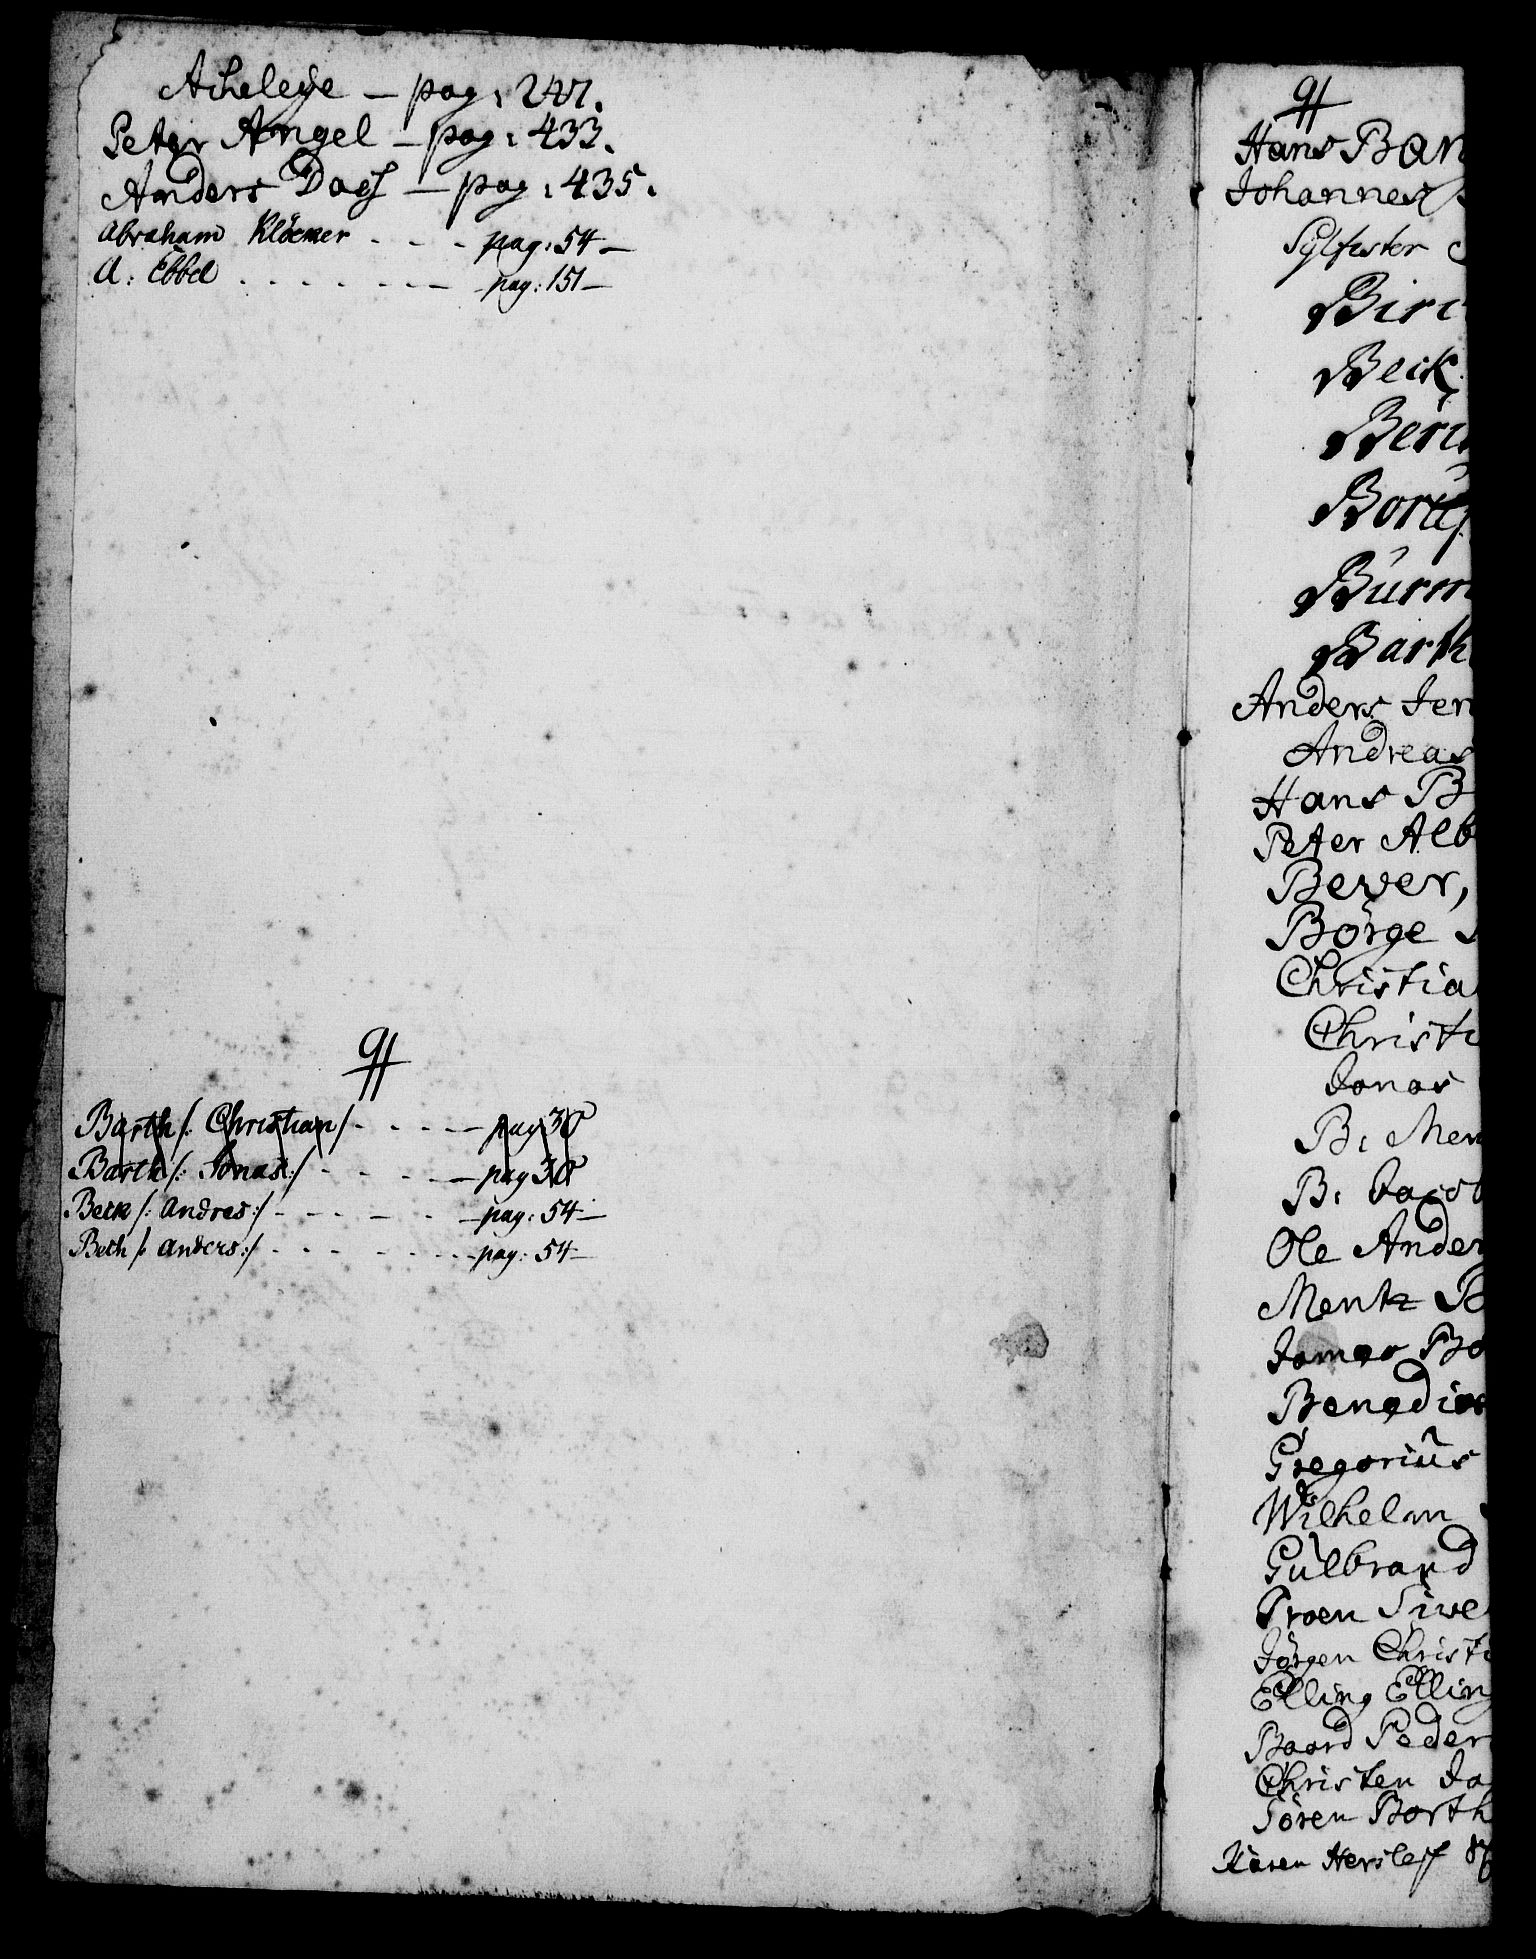 Acheleÿe — pag: 247.
Peter Angel — pag: 433.
Anders Dass — pag: 435.
Abraham Klöcker - - - - pag: 54 —
A: Ebbel - - - - - - - pag: 151 —
Barth /: Christian /- - - - - pag 30
Barth /: Jonas :/ - - - - - pag 30
Beck /: Andres :/ - - - - - pag: 54 —
Beth /: Anders :/ - - - - - - pag: 54 —
Hans Bar
Johannes
Sylfester
Birc
Beck
Beri
Borup
Burm
Barth
Anders Jen
Andreas
Hans B
Peter Alb
Beyer,
Börge
Christia
Christi
Jonas
B: Men
B: Jacob
Ole Ander
Mentz B
James Bo
Benedic
Gregorius
Wilhelm
Gulbrand
Troen Siwe
Jörgen Christi
Elling Elling
Baard Peder
Christen Ja
Sören Borth
Karen Hersleff